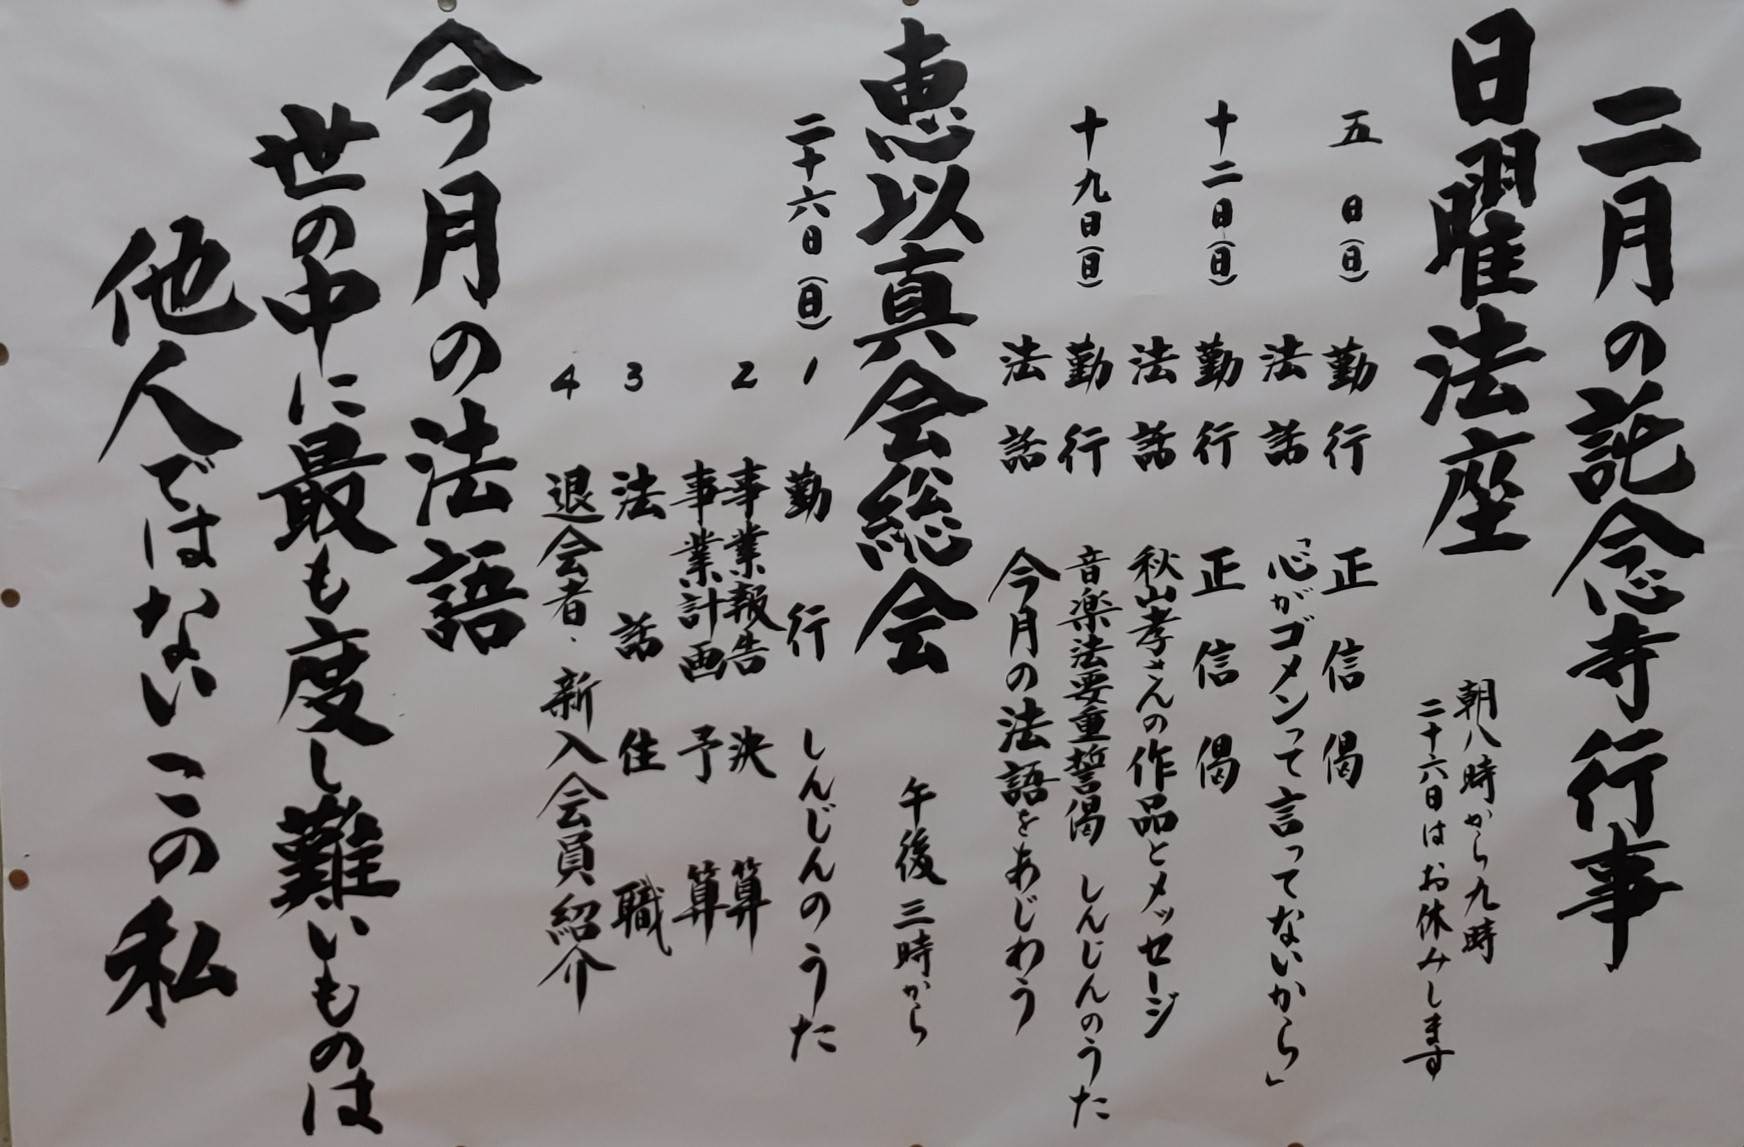 二月の託念寺行事
日曜法座
朝八時から九時
二十六日はお休みします
五日(日)
勤行 正信偈
法話 「心がゴメンって言ってないから」
十二日(日)
勤行 正信偈
法話 秋山孝さんの作品とメッセージ
十九日(日)
勤行 音楽法要重誓偈 しんじんのうた
法話 今月の法語をあじわう
恵以真会総会
午後三時から
二十六日(日)
1 勤行 しんじんのうた
2 事業報告 決算
事業計画 予算
3 法話 住職
4 退会者・新入会員紹介
今月の法語
世の中に最も度し難いものは
他人ではないこの私